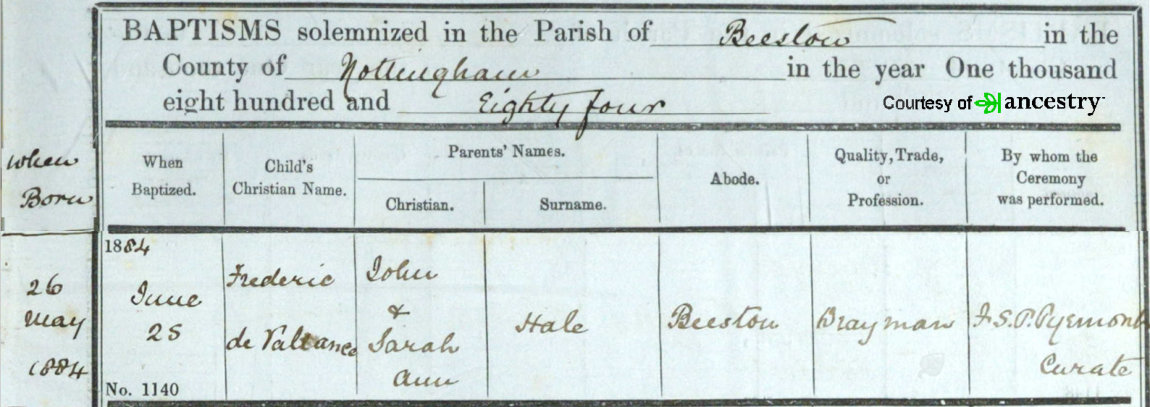 BAPTISMS solemnized in the Parish of Beeston in the
County of Nottingham in the year One thousand
eight hundred and Eighty four
Courtesy of ancestry
When
Born
When
Baptized.
Child's
Christian Name.
Parents' Names.
Christian.
Surname.
Abode.
Quality, Trade,
or
Profession.
By whom the
Ceremony
was performed.
26
May
1884
1884
June
25
No. 1140
Frederic
de Vallance
John
&
Sarah
Ann
Hale
Beeston
Drayman
F.S.P. Pyemont
Curate